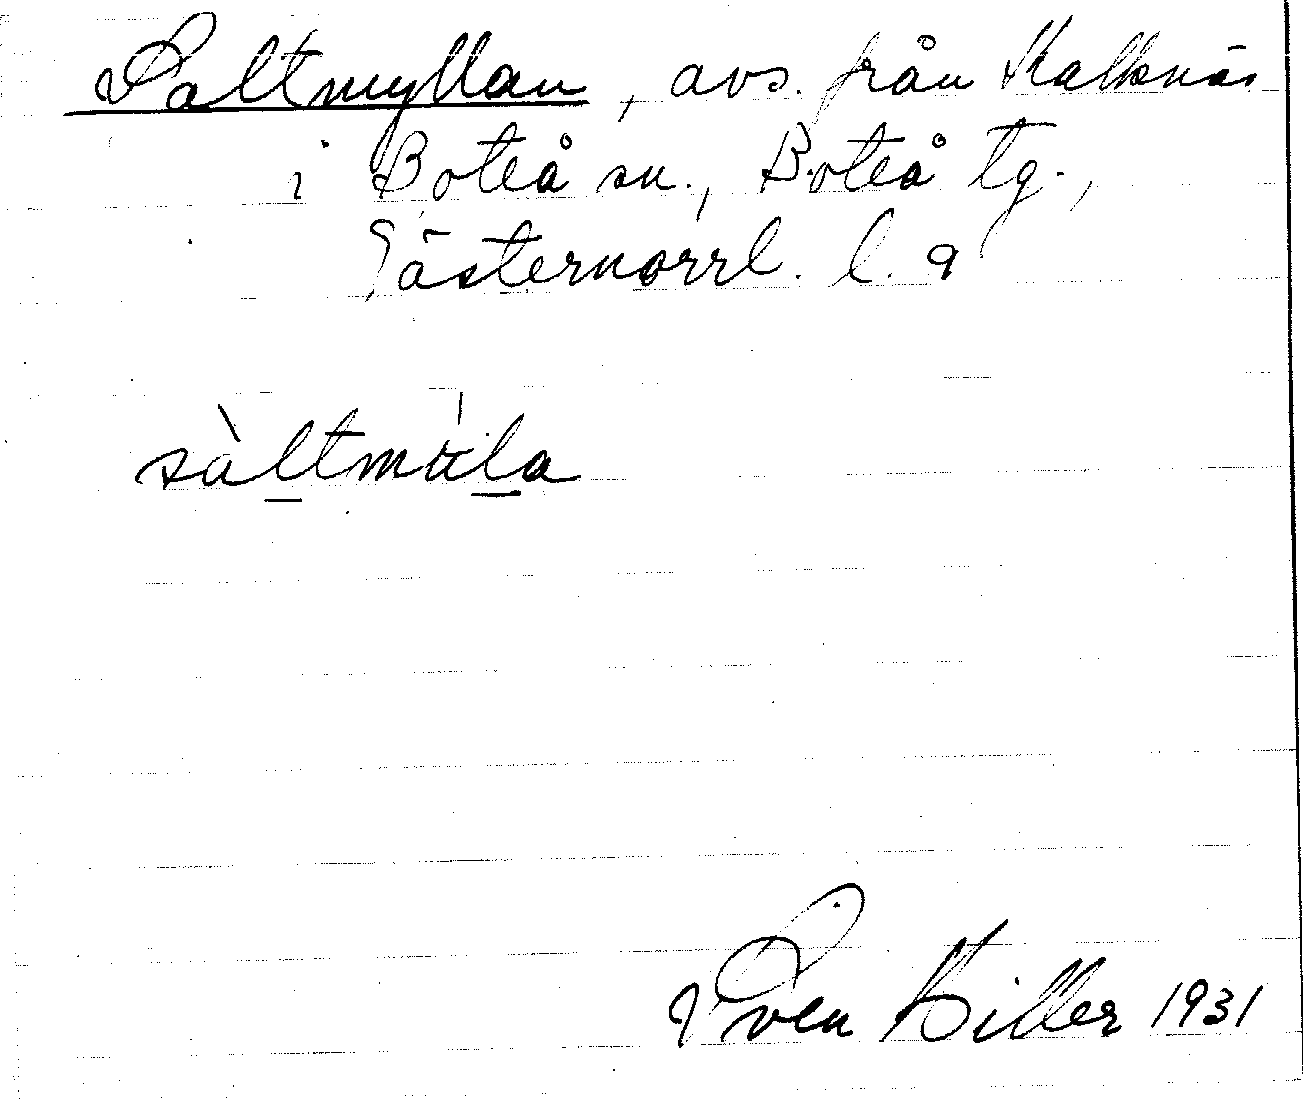 Saltmyllan, avs. från Kalknäs
i Boteå sn., Boteå tg.,
Västernorrl. l. a
sàltmùla
Sven Hiller 1931